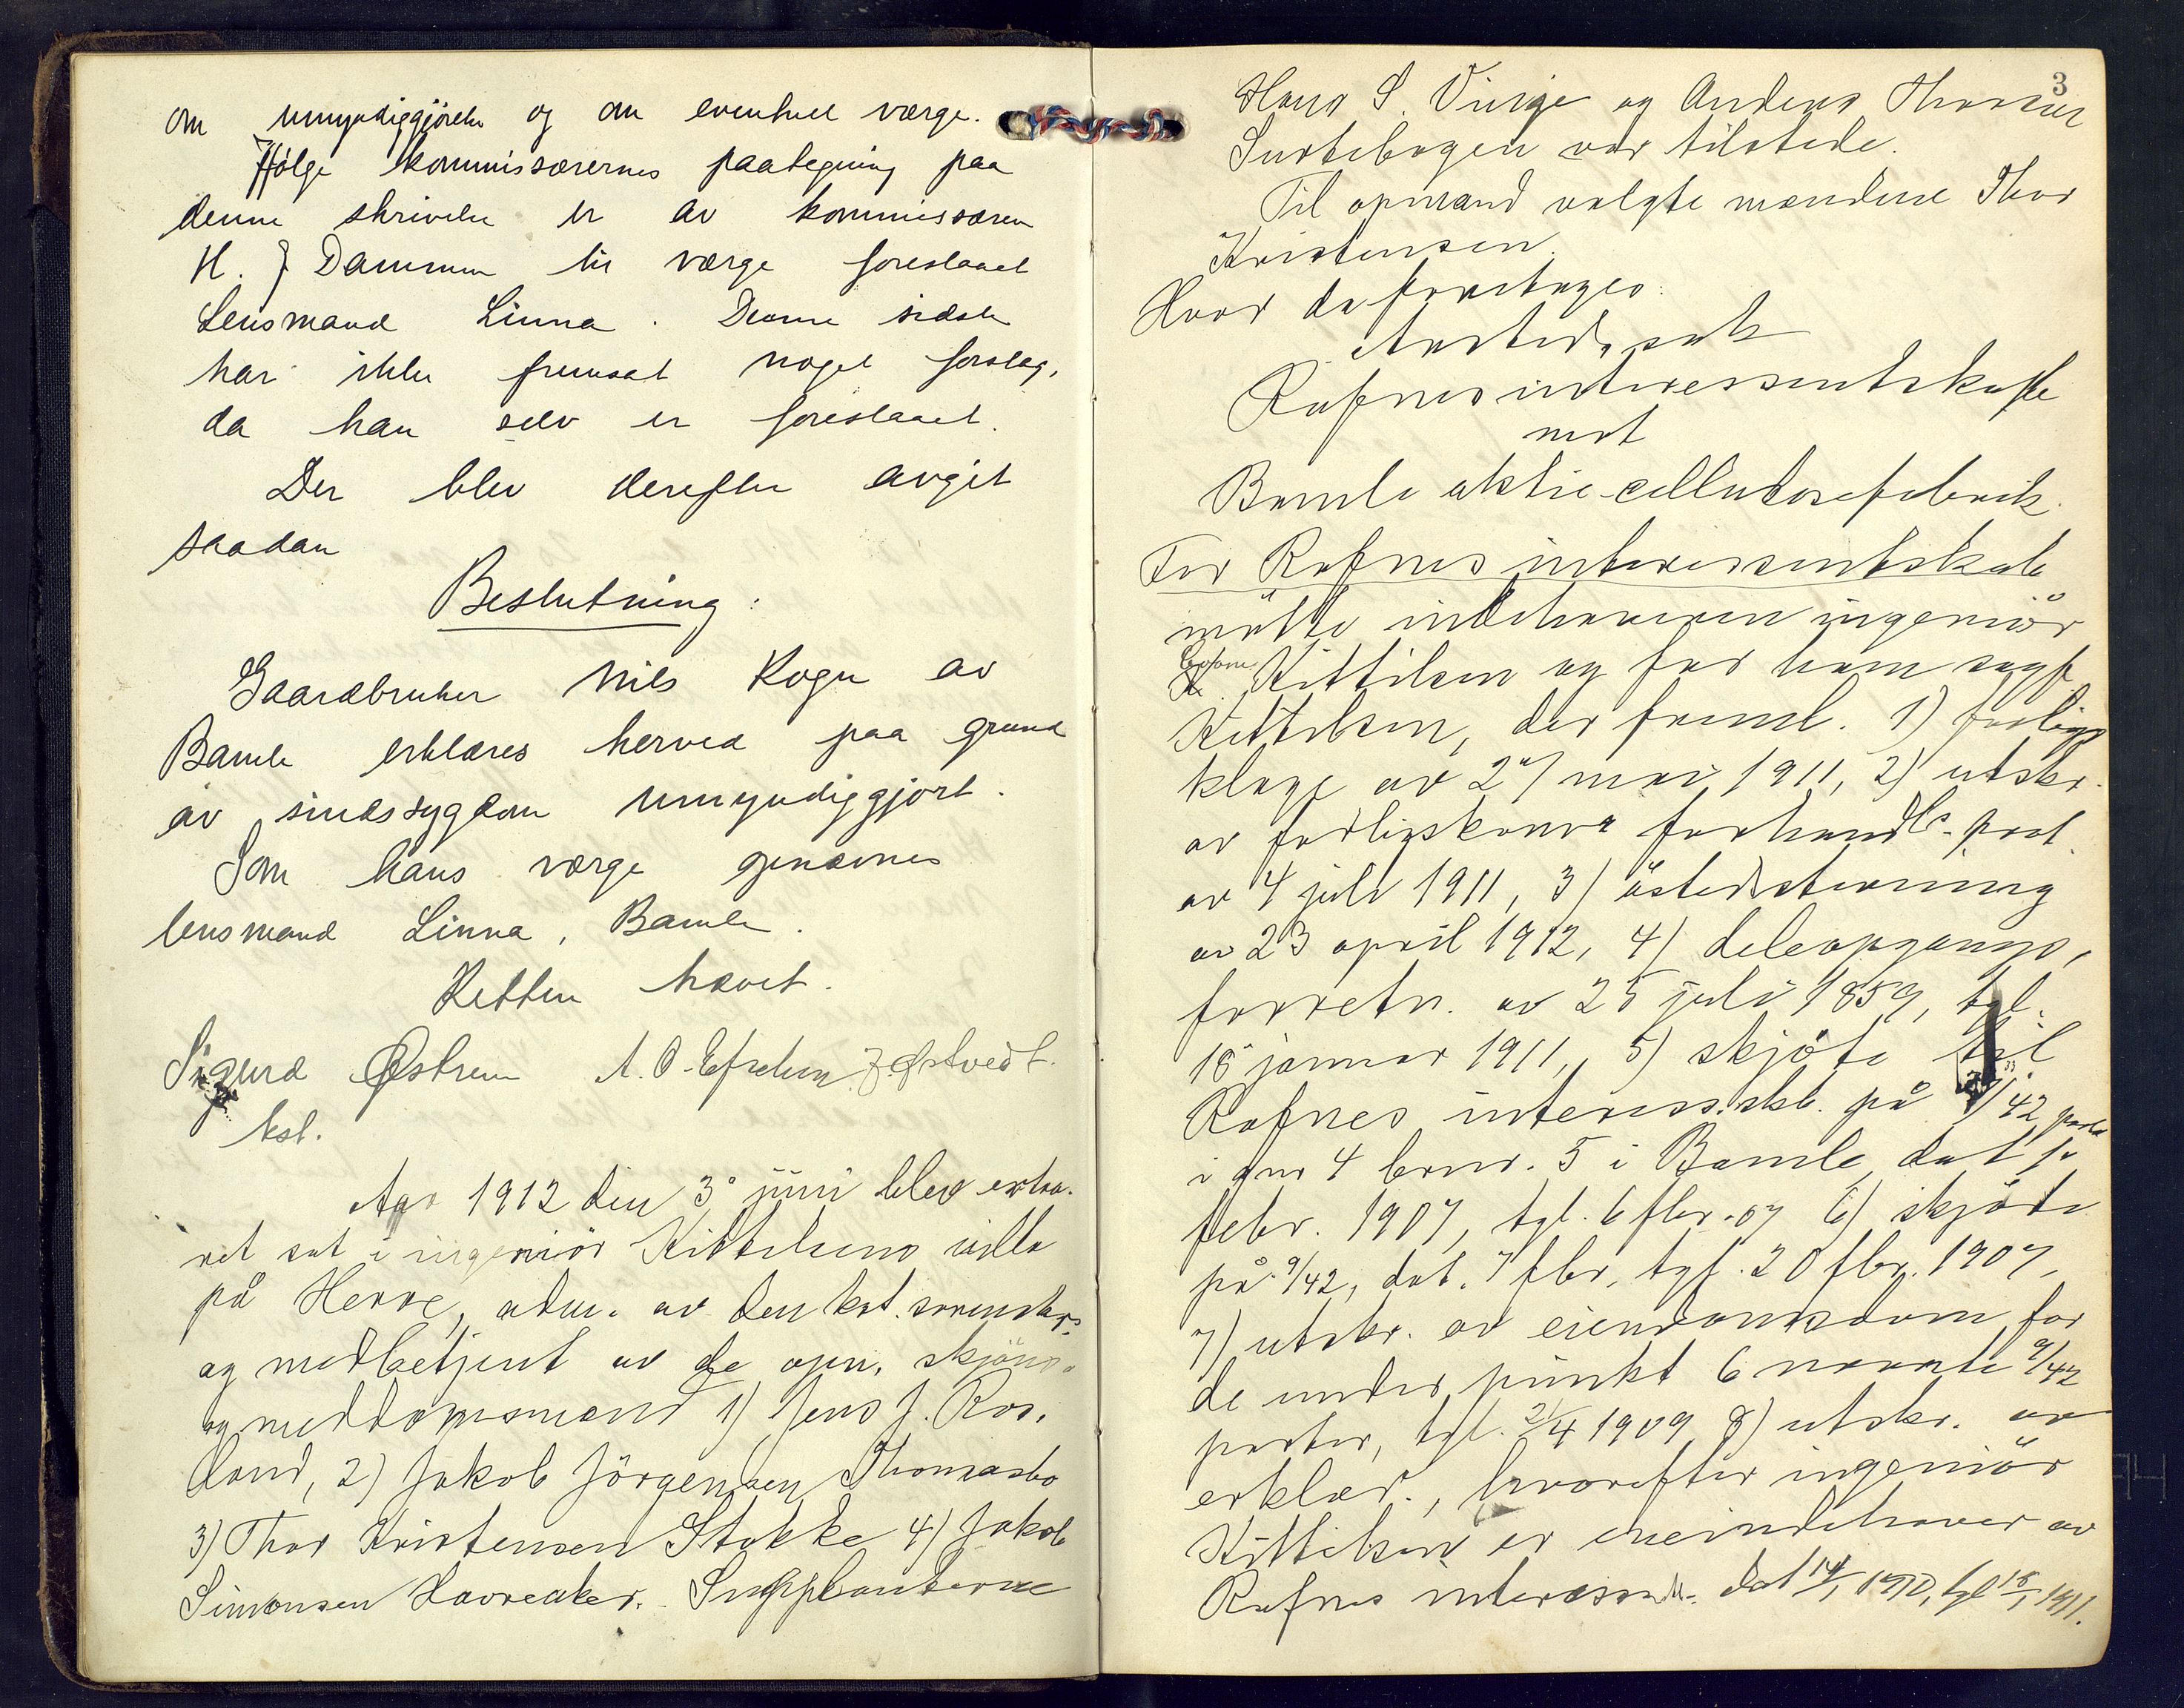 om umyndiggjörelse og om eventuel verge.
Ifölge kommissærernes paategning paa
denne skrivelse er av kommissæren
H. J Dammen til værge foreslaaet
Lensmand Linna. Denne sidste
har ikke fremsat noget forslag,
da han selv er foreslaaet.
Der blev derefter avgit
saadan
Beslutning:
Gaardbruker Nils Rogn av
Bamle erklæres herved paa grund
av sindssygdom umyndiggjort.
Som hans værge opnævnes
lensmand Linna, Bamle.
Retten hævet.
Sigurd Østrem A. O. Efrelsen J. Østvedt.
kst.
Aar 1912 den 3. juni blev extra-
ret sat i ingeniör Kittilsens villa
på Herre, adm. av den kst. sorenskr.
og medbetjent av de opn. skjöns-
og meddomsmænd 1) Jens J. Ros-
land, 2) Jakob Jörgensen Thomasbo
3) Thor Kristensen Stokke 4) Jakob
Simonsen Havreaker. Supplanterne
3
Hans S. Vinje og Anders Thorsen
Surtebogen var tilstede.
Til opmand valgte mændene Thor
Kristensen.
Hvor da foretages:
Åstedssak
Rafnes interessentskap
mot
Bamle aktie-cellulosefabrik.
For Rafnes interessentskab
mötte indehaveren ingeniör
Kittilsen og for ham sagf.
Kittilsen, der freml. 1) forligs
klage av 27 mai 1911, 2) utskr.
av forligskomm. forhandls-prot.
av 4 juli 1911, 3) åstedsstevning
av 23 april 1912, 4) deleopgangs-
forretn. av 25 juli 1859, tgl.
18 januar 1911, 5) skjöte til
Rafnes interess.skb. på /42 parter
i gnr 4 brnr. 5 i Bamle, dat
febr. 1907, tgl. 6 fbr. 07 6) skjöte
på 9/42, dat. 7 fbr, tgl. 20 fbr. 1907,
7) utskr. av eiendomsdom for
de under punkt 6 nævnte 9/42
parter, tgl. 2/4 1909 8) utskr. av
erklær., hvorefter ingeniör
Kittilsen er eneindehaver av
Rafnes interessentsk. dat 14/1 1910, tgl 18/1 1911.